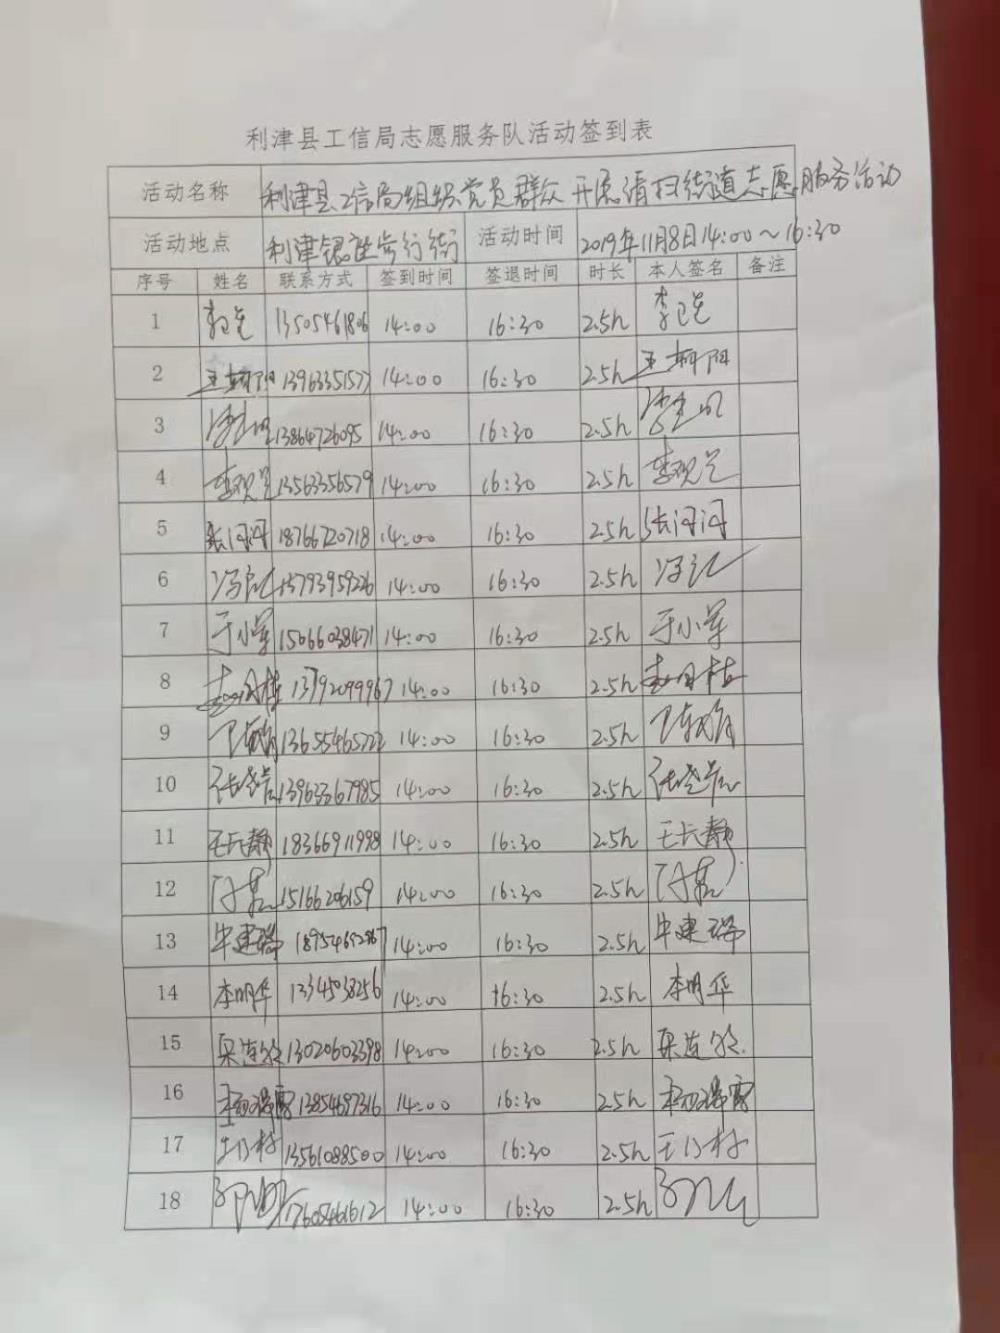 利津县工信局志愿服务队活动签到表
活动名称 利津县工信局组织党员群众开展清扫街道志愿服务活动
活动地点 利津银座步行街 活动时间 2019年11月8日14:00~16:30
序号 姓名 联系方式 签到时间 签退时间 时长 本人签名 备注
1 13505461806 14:00 16:30 2.5h
2 王朝阳 13963351577 14:00 16:30 2.5h 王朝阳
3 13864726095 14:00 16:30 2.5h
4 李观兰 13563356579 14:00 16:30 2.5h 李观兰
5 张河河 18766720718 14:00 16:30 2.5h 张河河
6 13793959226 14:00 16:30 2.5h
7 于小军 15066038471 14:00 16:30 2.5h 于小军
8 13792099967 14:00 16:30 2.5h
9 13655465722 14:00 16:30 2.5h
10 13963367985 14:00 16:30 2.5h
11 王长静 18366911998 14:00 16:30 2.5h 王长静
12 15166206159 14:00 16:30 2.5h
13 牛建瑞 18954652267 14:00 16:30 2.5h 牛建瑞
14 李明华 13345038256 14:00 16:30 2.5h 李明华
15 13020603398 14:00 16:30 2.5h
16 13854697316 14:00 16:30 2.5h
17 13561088500 14:00 16:30 2.5h
18 17605461612 14:00 16:30 2.5h